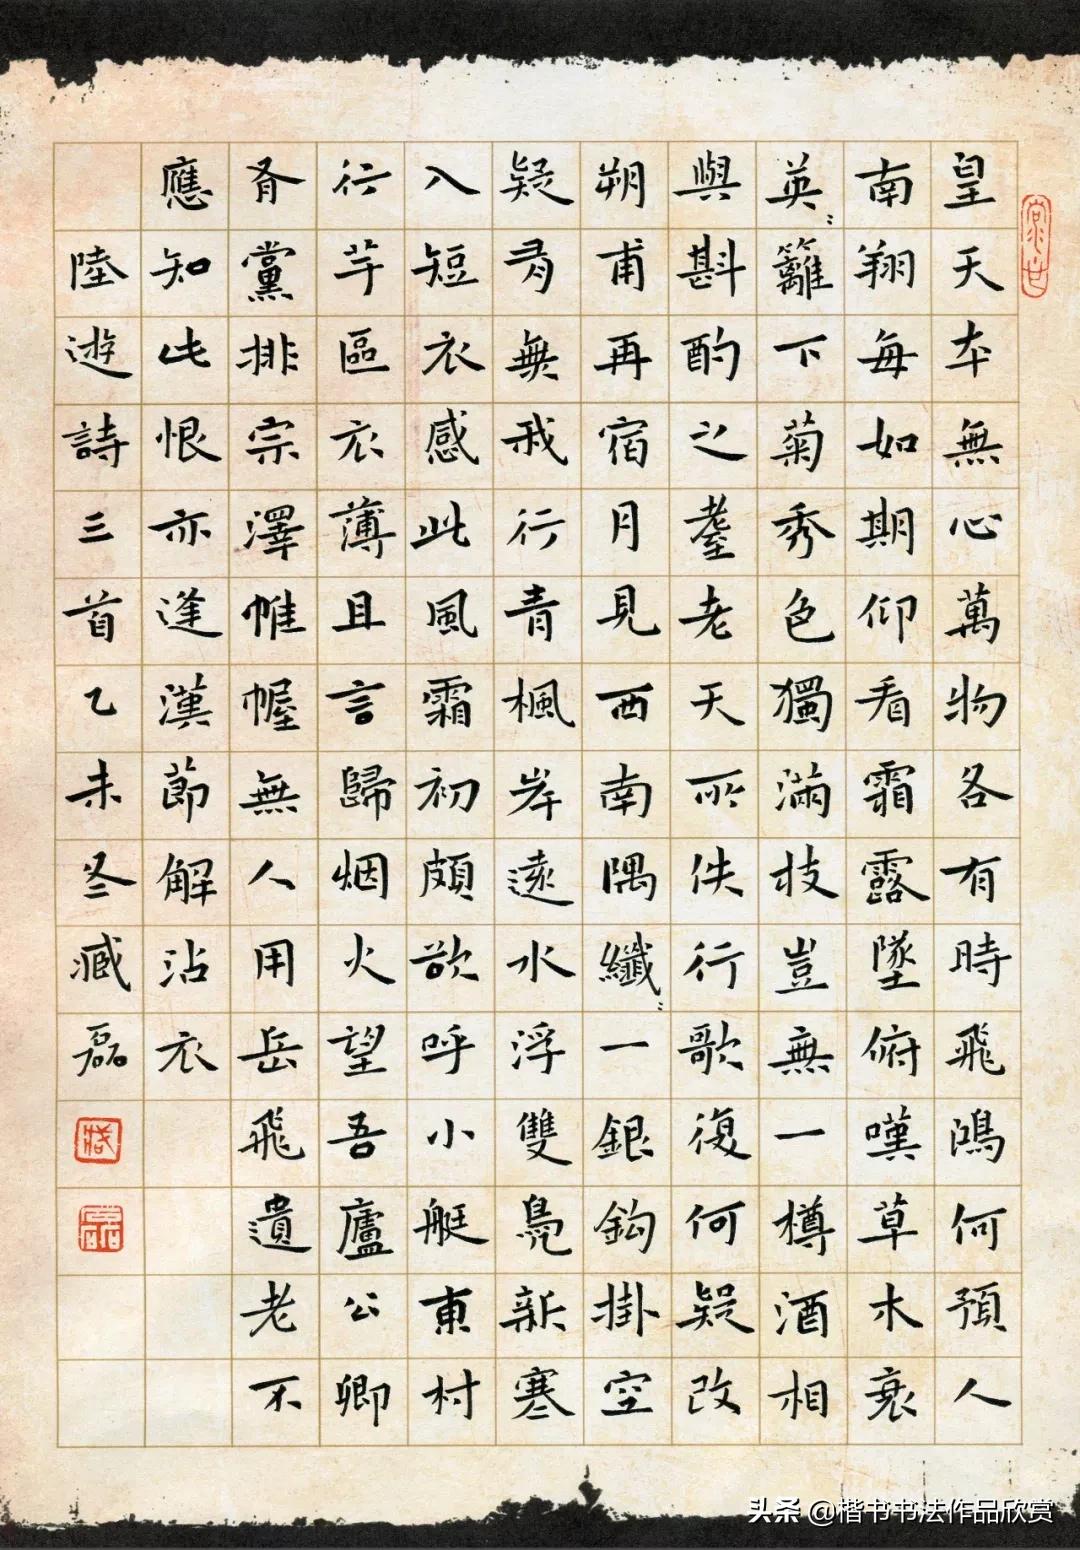 皇天本無心萬物各有時飛鴻何預人
南翔每如期仰看霜露墜俯嘆草木衰
英〻籬下菊秀色獨滿枝豈無一樽酒相
與斟酌之耋老天所佚行歌復何疑改
朔甫再宿月見西南隅纖〻一銀鈎掛空
疑有無我行青楓岸遠水浮雙鳧新寒
入短衣感此風霜初頗欲呼小艇東村
行芋區衣薄且言歸烟火望吾廬公卿
有黨排宗澤帷幄無人用岳飛遺老不
應知此恨亦逢漢節解沾衣
陸遊詩三首乙未冬臧磊
臧
磊
头条 @楷书书法作品欣赏